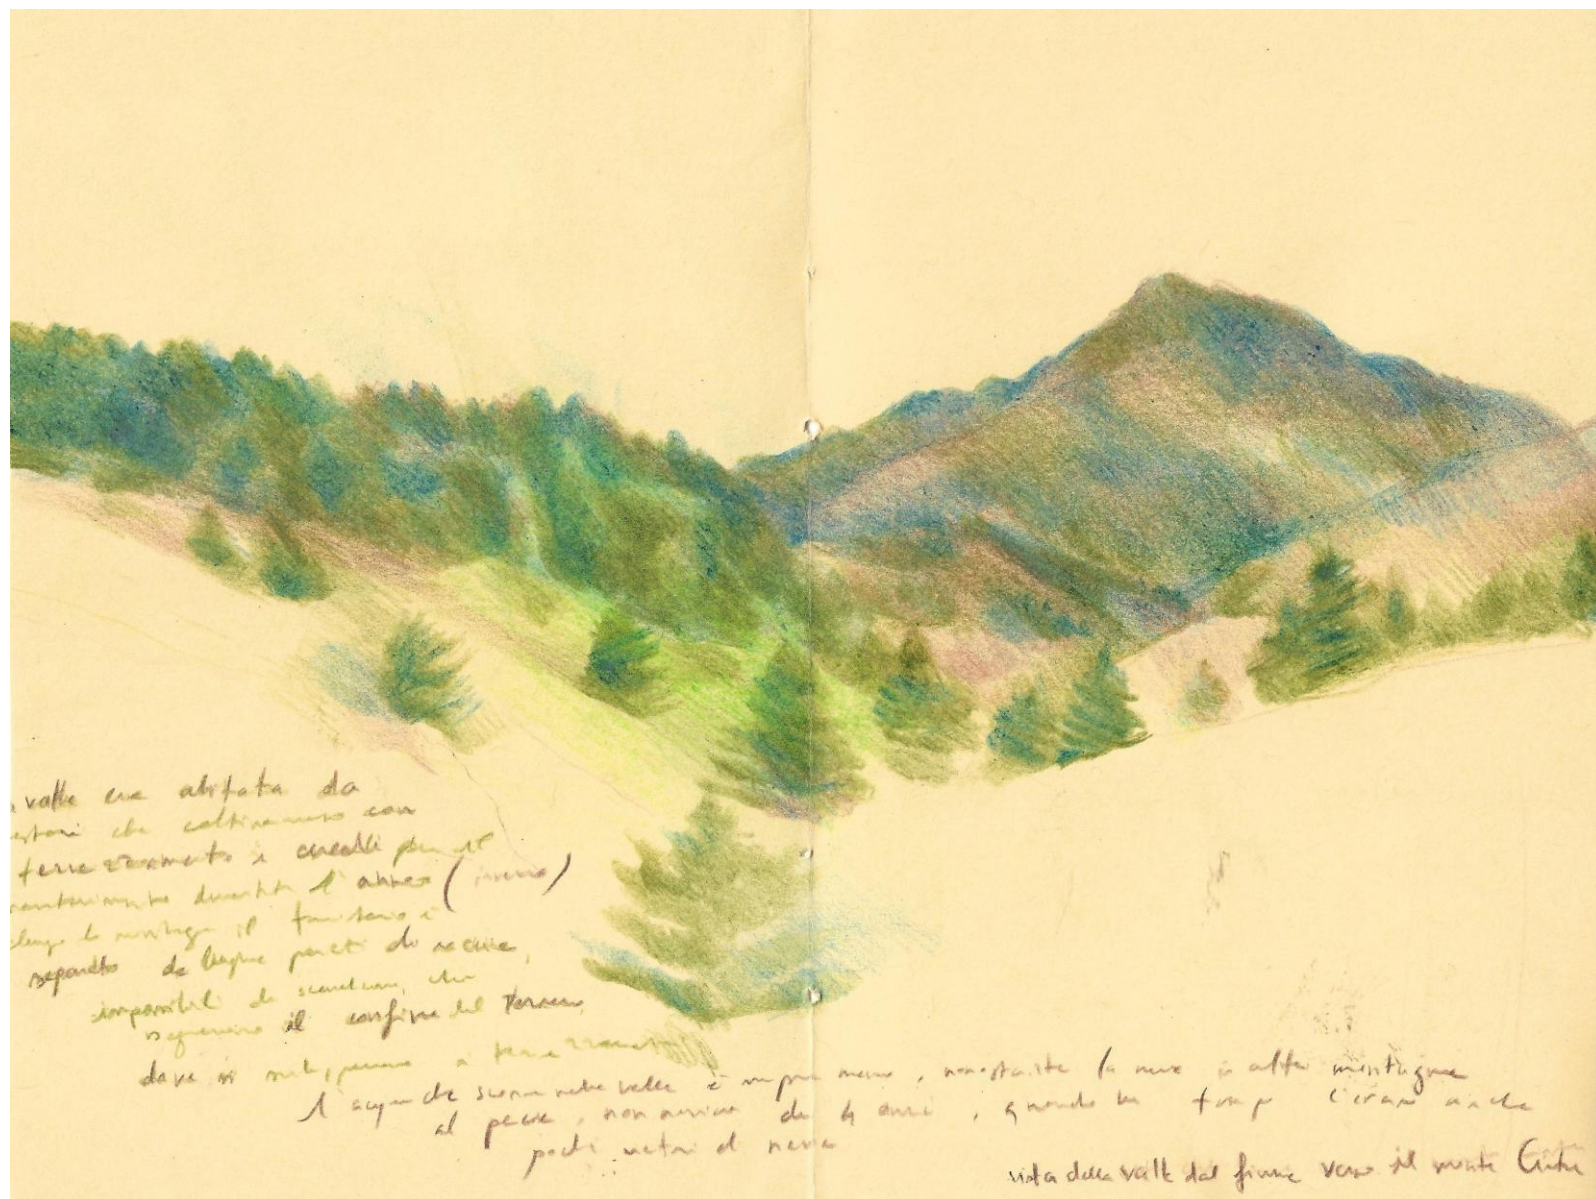 valle era abitata da
che coltivavano con
terrazzamento e cereali per il
durante l'anno (inverno)
il territorio è
separato da lunghe pareti di roccia,
impossibili da scavalcare, che
seguivano il confine del terreno,
dove si sviluppano i terrazzamenti
l'acqua che scorre nella valle è sempre meno, nonostante la neve in alta montagna
al paese, non nevica da 4 anni, quando un tempo c'erano anche
pochi metri di neve
vista della valle dal fiume verso il monte